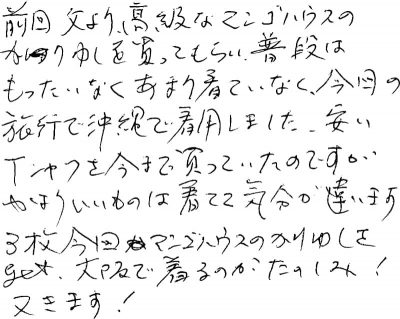 前回父より、高級なマンゴハウスの
かりゆしを買ってもらい普段は
もったいなくあまり着ていなく、今回の
旅行で沖縄で着用しました。安い
Tシャツを今まで買っていたのですが
やはりいいものは着てて気分が違います
3枚今回マンゴハウスのかりゆしを
get、大阪で着るのがたのしみ！
又きます！